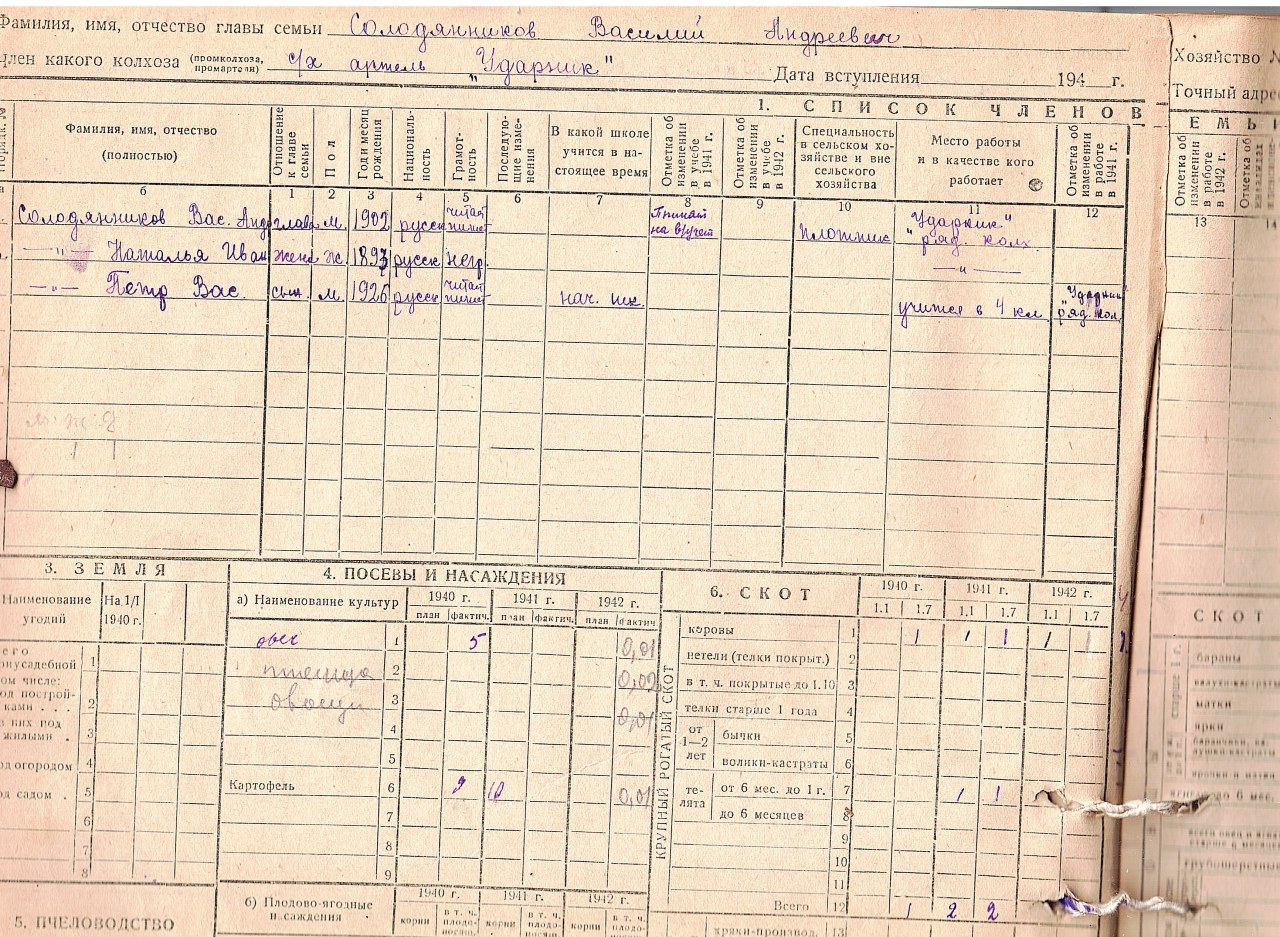 Фамилия, имя, отчество главы семьи Солодянников Василий Андреевич
Член какого колхоза (промколхоза, промартели) с/х артель "Ударник" Дата вступления 194 г.
Хозяйство №
Точный адрес
1. СПИСОК ЧЛЕНОВ
ЕМЬИ
Порядк. №
Фамилия, имя, отчество (полностью)
Отношение к главе семьи
Пол
Год и месяц рождения
Националь-ность
Грамот-ность
Последую-щие изме-нения
В какой школе учится в на-стоящее время
Отметка об изменении в учебе в 1941 г.
Отметка об изменении в учебе в 1942 г.
Специальность в сельском хо-зяйстве и вне сельского хозяйства
Место работы и в качестве кого работает
Отметка об изменении в работе в 1941 г.
Отметка об изменении в работе в 1942 г.
Отметка об
а б 1 2 3 4 5 6 7 8 9 10 11 12 13 14
Солодянников Вас. Анд глава м. 1902 русск читает пишет плотник "Ударник" ряд. колх.
—"— Наталья Иван жена ж. 1893 русск негр. —"—
—"— Петр Вас. сын м. 1926 русск читает пишет нач. шк. учится в 4 кл. "Ударник" ряд. кол.
м ж 2
1 1
3. ЗЕМЛЯ
Наименование угодий
На 1/I 1940 г.
его
приусадебной 1
том числе:
од построй-
ками . . . 2
з них под
жилыми . 3
од огородом 4
од садом . 5
6
7
8
5. ПЧЕЛОВОДСТВО
4. ПОСЕВЫ И НАСАЖДЕНИЯ
а) Наименование культур 1940 г. 1941 г. 1942 г.
план фактич. план фактич. план фактич
овес 1 5 0,01
пшеница 2 0,02
овощи 3 0,01
4
5
Картофель 6 9 10 0,01
7
8
9
б) Плодово-ягодные насаждения 1940 г. 1941 г. 1942 г.
корни в т. ч. плодо-носящ. корни в т. ч. плодо-носящ. корни в т. ч. плодо-
6. СКОТ 1940 г. 1941 г. 1942 г.
1.1 1.7 1.1 1.7 1.1 1.7
КРУПНЫЙ РОГАТЫЙ СКОТ
коровы 1 1 1 1 1 1
нетели (телки покрыт.) 2
в т. ч. покрытые до 1.10 3
телки старше 1 года 4
от 1—2 лет
бычки 5
волики-кастраты 6
те-лята
от 6 мес. до 1 г. 7 1 1
до 6 месяцев 8
9
10
11
Всего 12 1 2 2
хряки-производ. 13
СКОТ
старше 1 г.
бараны
валухи-кастраты
матки
ярки
до 6 мес.
грубошерстные